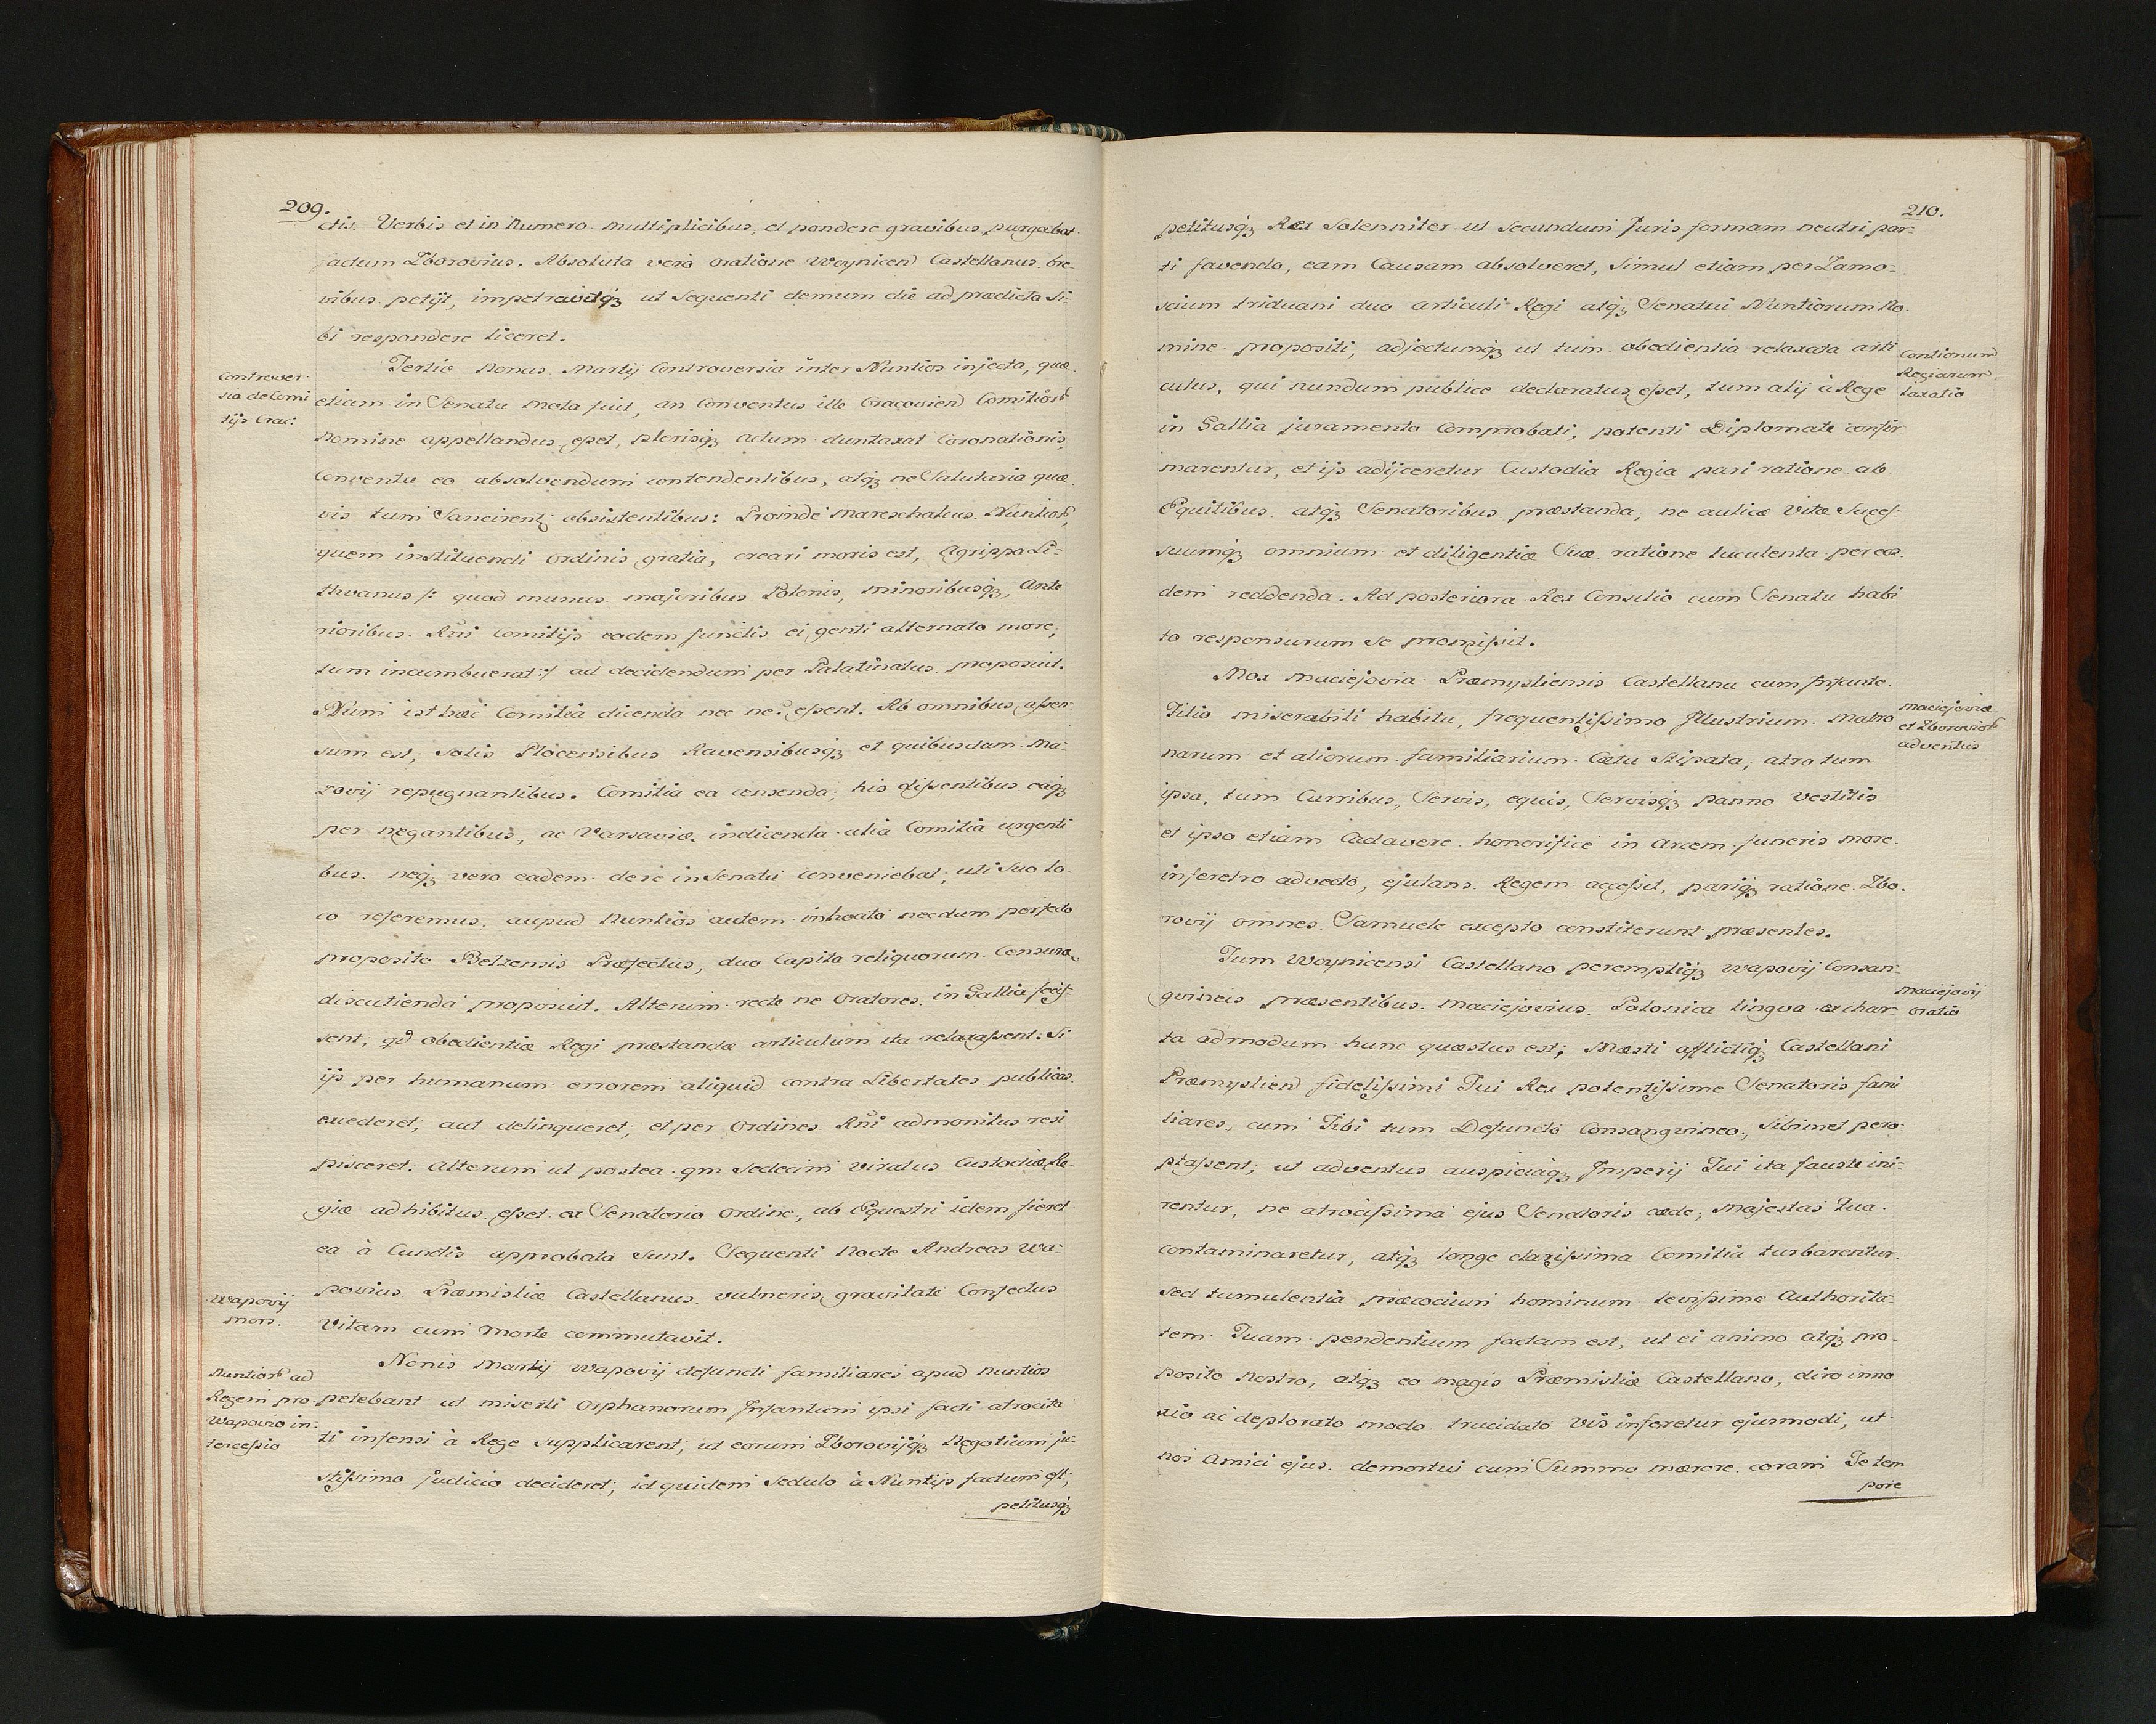 209.
ctis. Verbis et in Numero multiplicibus, et pondere gravibus purgabat.
factum Zborovius. Absoluta verò oratione Woyniceñ Castellanus bre-
vibus petijt, impetravitq́; ut sequenti demum die ad prædicta si-
bi respondere liceret.
Tertiæ Nonas Martij Controversia inter Nuntios injecta, quæ
Controver
sia de Comi
tijs Crac:
etiam in Senatu mota fuit, an Conventus ille Cracovieñ Comitiorũ
Nomine appellandus esset, plerisq́; actum duntaxat Coronationis,
Conventu eo absolvendum contendentibus, atq́; ne Salutaria quæ
vis tum Sancirent; obsistentibus: Proinde Mareschalcus Nuntiorũ,
quem instituendi ordinis gratia, creari moris est, Agrippa Li-
thvanus /: quod munus majoribus Polonis, minoribusq́;, Ante
rioribus. Rñi Comitijs eodem functis ei genti alternato more,
tum incumbuerat :/ ad decidendum per Palatinatus proposuit.
Num isthæc Comitia dicenda nec ne? essent. Ab omnibus assen
sum est, solis Plocensibus Ravensibusq́; et quibusdam Ma-
zovij repugnantibus. Comitia ea censenda; his dissentibus eaq́;
per negantibus, ac Varsaviæ indicenda alia Comitia urgenti
bus. neq́; vero eadem de re in Senatu conveniebat, uti suo lo-
co referemus. aupud Nuntios autem inhoato necdum perfecto
proposito Belzensis Præfectus, duo Capita reliquorum Censuræ
discutienda proposuit. Alterum recte ne Oratores in Gallia fecis-
sent; qđ obedientiæ Regi præstandæ articulum ita relaxassent. Si
ijs per humanum errorem aliquid contra Libertates publicas
excederet; aut delinqueret; et per Ordines Rñi admonitus resi
pisceret. Alterum ut postea qm̃ sedecim viratus Custodiæ Re-
giæ adhibitus esset ex Senatorio Ordine, ab Equestri idem fieret
ea à Cunctis approbata sunt. Sequenti Nocte Andreas Wa-
povius Præmisliæ Castellanus vulneris gravitate Confectus
Wapovij
mors.
Vitam cum Morte commutavit.
Nonis Martij Wapovij defuncti familiares apud Nuntios
Nuntiorũ ad
Regem pro
Wapovio in-
tercessio
petebant ut miserti Orphanorum Infantium ipsi facti atrocita
ti infensi à Rege supplicarent; ut eorum Zborovijq́; Negotium ju-
stissimo judicio decideret; id quidem sedulo à Nuntijs factum est,
petitusq́;
210.
petitusq́; Rex Solenniter ut Secundum Juris formam neutri par-
ti favendo, eam Causam absolveret, Simul etiam per Zamo-
scium triduani duo articuli Regi atq́; Senatui Nuntiorum No-
mine propositi, adjectumq́; ut tum obedientia relaxata arti
Contionum
Regiarum
taxatio
culus, qui nundum publice declaratus esset, tum alij à Rege
in Gallia juramento Comprobati, potenti Diplomate confir
marentur, et ijs adijceretur Custodia Regia pari ratione ab
Equitibus atq́; Senatoribus præstanda; ne aulicæ Vitæ Suces-
suumq́; omnium et diligentiæ Suæ ratione luculenta per eos
dem reddenda. Ad posteriora Rex Consilio cum Senatu habi
to responsurum se promissit.
Mox Maciejovia Præmysliensis Castellana cum Infante
Filio miserabili habitu, frequentissimo Jllustrium Matro
Maciejoviæ
et Zboroviorũ
adventus
narum et aliorum familiarium Cætu Stipata, atro tum
ipsa, tum Curribus, Servis, equis, Servisq́; panno Vestitis
et ipso etiam Cadavere honorifice in Arcem funeris more
inferetro advecto, ejulans Regem accessit, pariq́; ratione Zbo-
rovij omnes Samuele excepto constiterunt præsentes.
Tum Woynicensi Castellano peremptiq́; Wapovij Consan-
gvineis præsentibus. Maciejovius Polonica lingva ex char
Maciejovij
oratio
ta admodum hunc quæstus est; Mæsti afflictiq́; Castellani
Præmyslieñ fidelissimi Tui Rex potentissime Senatoris fami
liares, cum Tibi tum Defuncto Consangvineo, Sibimet pero-
ptassent; ut adventus auspiciaq́; Imperij Tui ita fauste ini-
rentur, ne atrocissima ejus Senatoris cæde; Majestas Tua
contaminaretur, atq́; longe clarissima Comitia turbarentur.
Sed tumulentia præcocium hominum levissime Authorita-
tem Tuam pendentium factam est, ut ei animo atq́; pro-
posito Nostro, atq́; eo magis Præmisliæ Castellano, diro inno
xio ac deplorato modo trucidato Vis inferetur ejusmodi, ut
nos Amici ejus demortui cum Summo mærore coram Te tem
pore